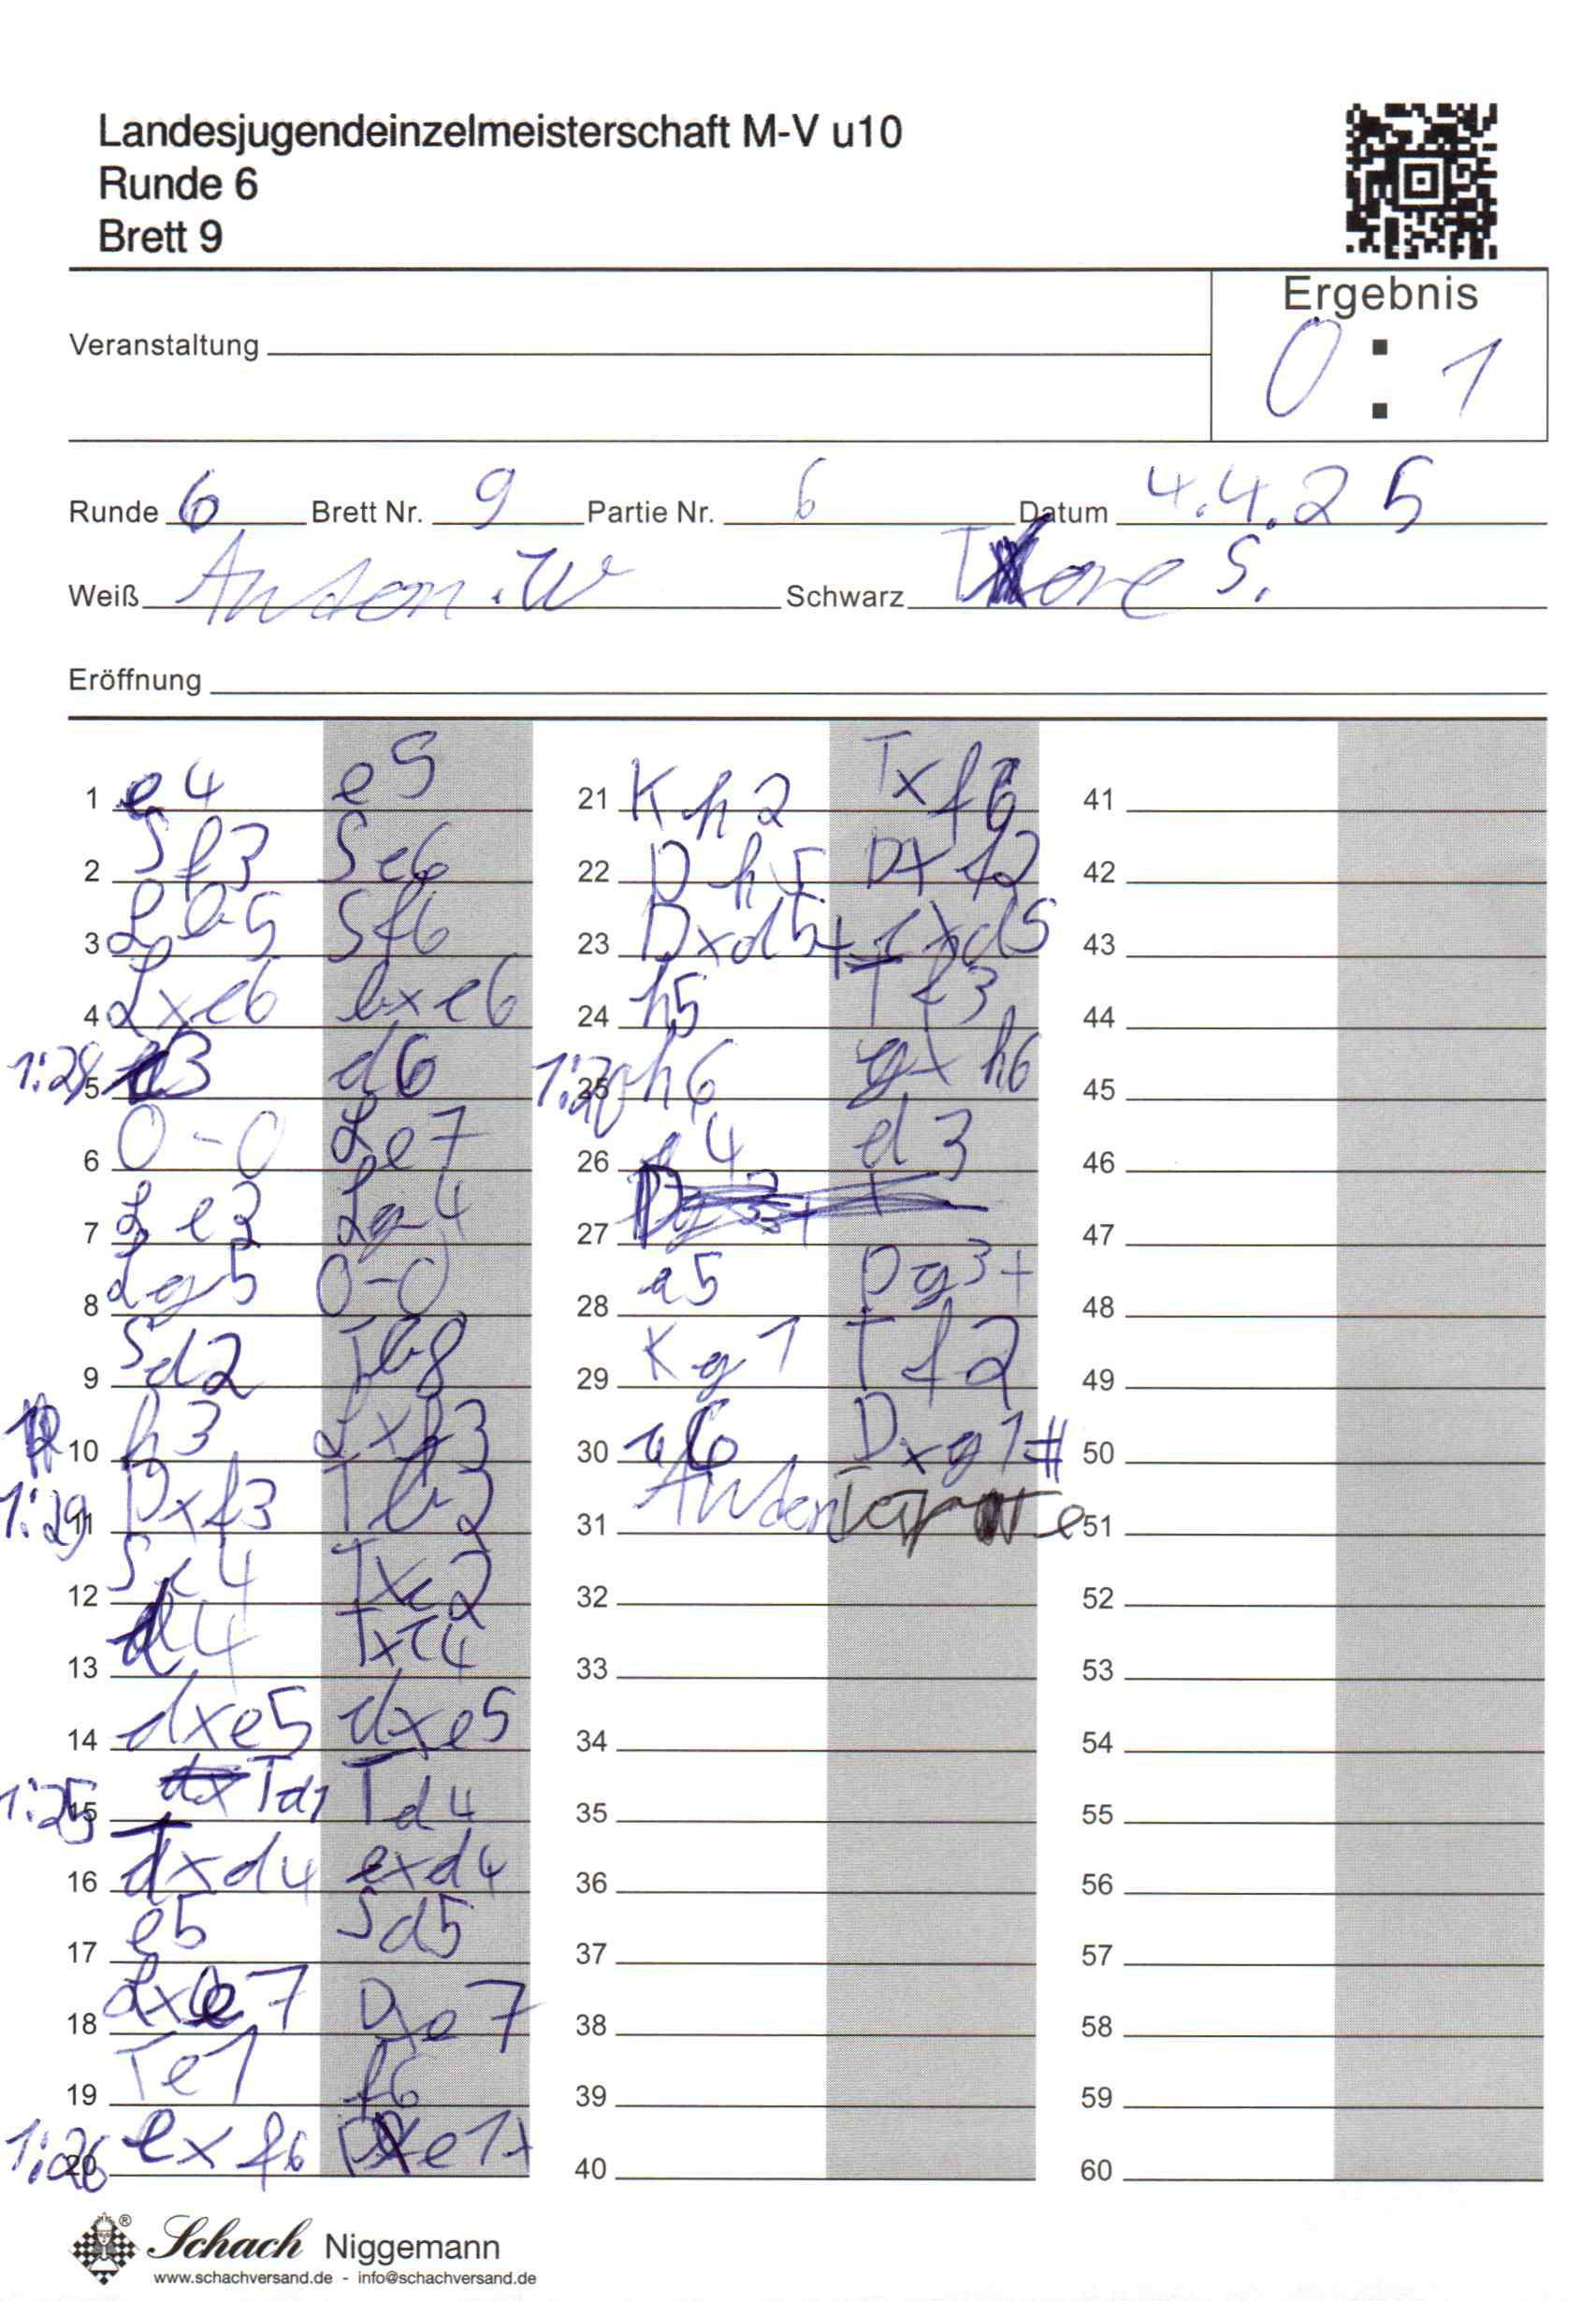 Landesjugendeinzelmeisterschaft M-V u10
Runde 6
Brett 9
Ergebnis
0 : 1
Veranstaltung
Runde 6 Brett Nr. 9 Partie Nr. 6 Datum 4.4.25
Weiß Anton.W Schwarz Tore S.
Eröffnung
1 e4 e5
2 Sf3 Sc6
3 Lb5 Sf6
4 Lxc6 bxc6
5 d3 d6
6 0-0 Le7
7 Le3 Lg4
8 Lg5 0-0
9 Sd2 Tb8
10 h3 Lxf3
1:29 11 Dxf3 Tb2
12 Sc4 Txc2
13 d4 Txc4
14 dxe5 dxe5
1:25 15 Td1 Td4
16 Txd4 exd4
17 e5 Sd5
18 Lxe7 Dxe7
19 Te1 f6
1:26 20 exf6 Dxe1+
21 Kh2 Txf6
22 Dh5 Dxf2
23 Dxd5+ cxd5
24 h5 Tf3
25 h6 gxh6
26 a4 d3
27
28 a5 Dg3+
29 Kg1 Tf2
30 a6 Dxg1#
31 Anton
32
33
34
35
36
37
38
39
40
41
42
43
44
45
46
47
48
49
50
51
52
53
54
55
56
57
58
59
60
Schach Niggemann
www.schachversand.de - info@schachversand.de